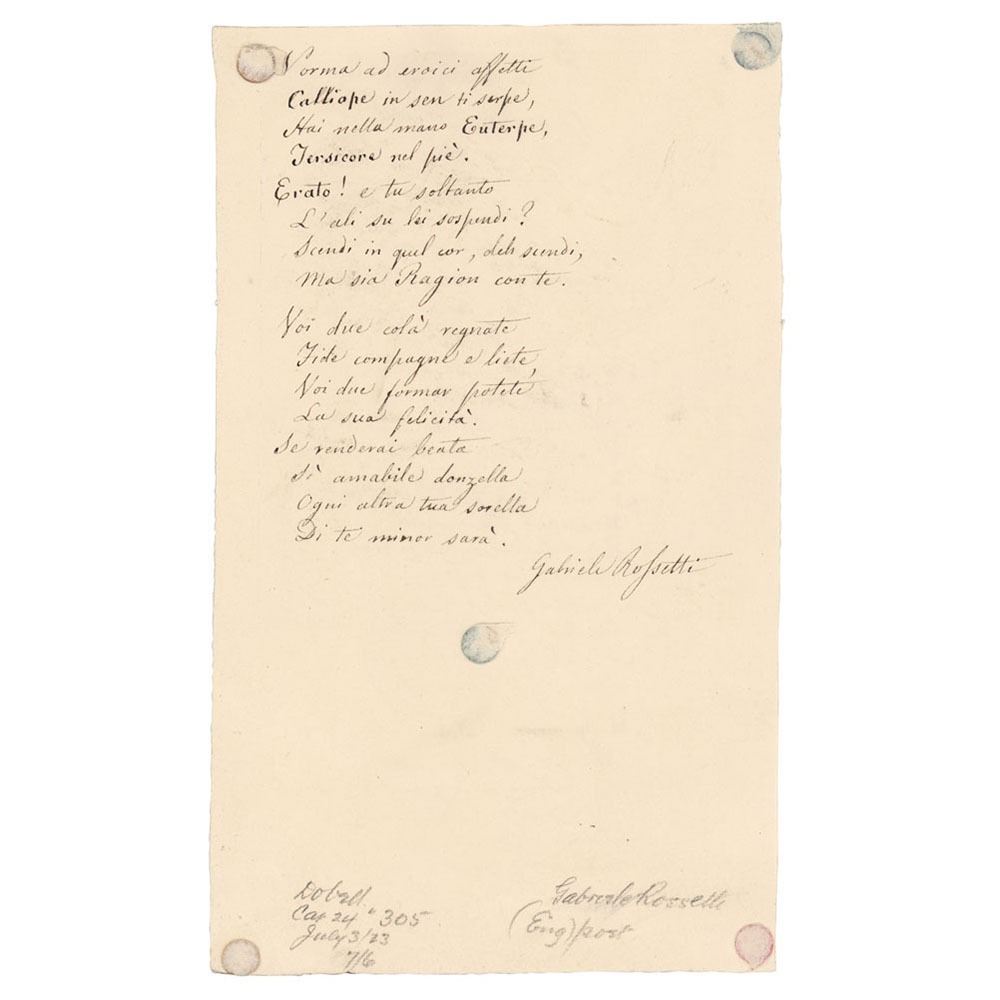 Norma ad eroici affetti
Calliope in sen ti serpe,
Hai nella mano Euterpe,
Tersicore nel piè.
Erato! e tu soltanto
L'ali su lei sospendi?
Scendi in quel cor, deh scendi,
Ma sia Ragion con te.
Voi due colà regnate
Fide compagne e liete,
Voi due formar potete
La sua felicità.
Se renderai beata
Sì amabile donzella
Ogni altra tua sorella
Di te minor sarà.
Gabriele Rossetti
Dobell
Cat 24 " 305
July 3/23
7/6
Gabriele Rossetti
(Eng) poet